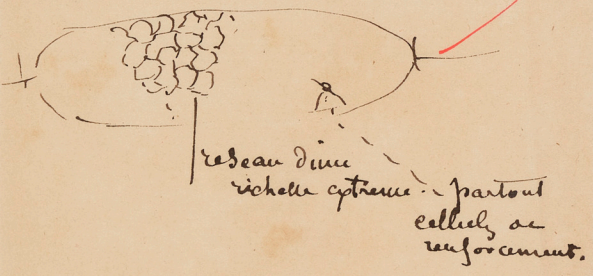 reseau d'une
richesse extreme. - partout
cellules de
renforcement.